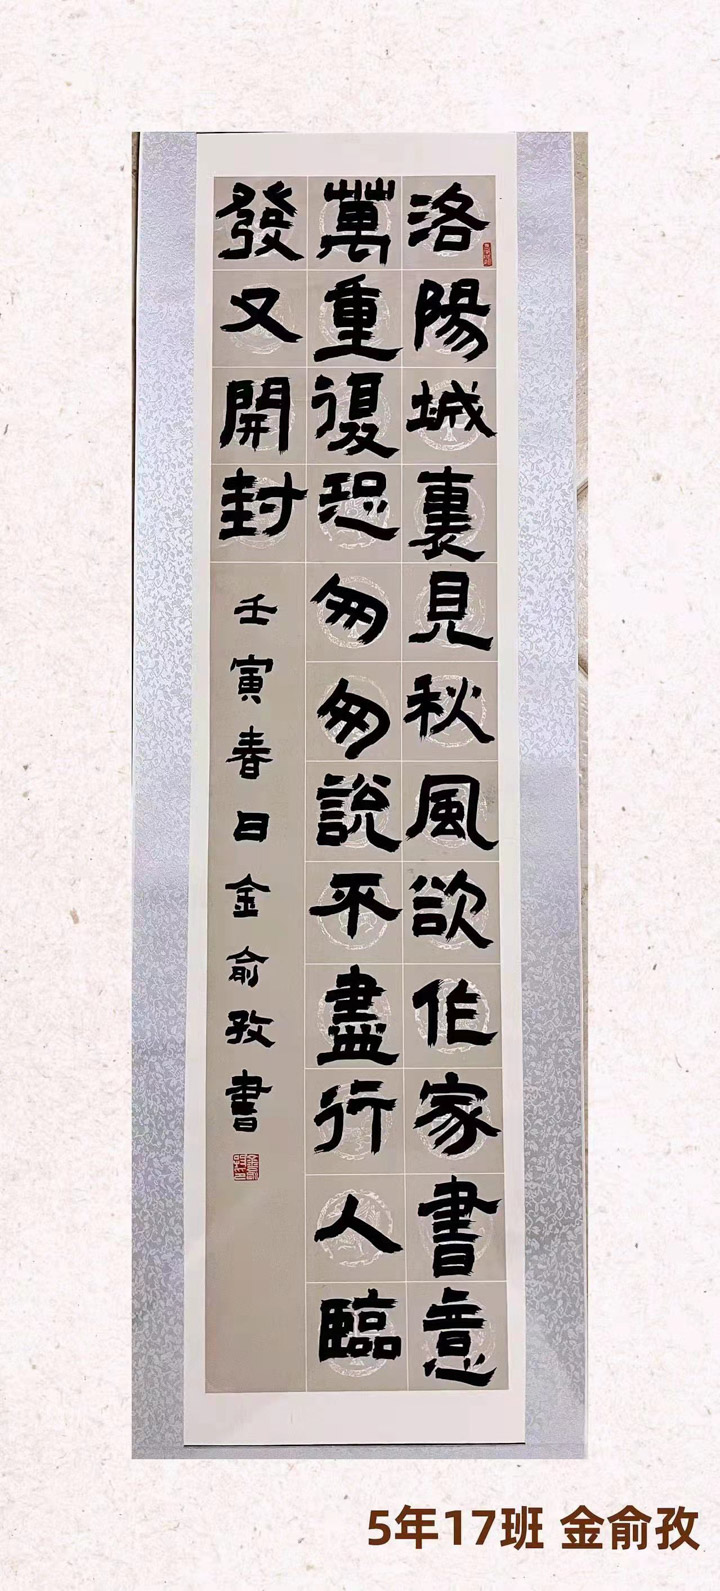 洛陽城裏見秋風欲作家書意
萬重復恐匆匆說不盡行人臨
發又開封
壬寅春日金俞孜書
5年17班 金俞孜